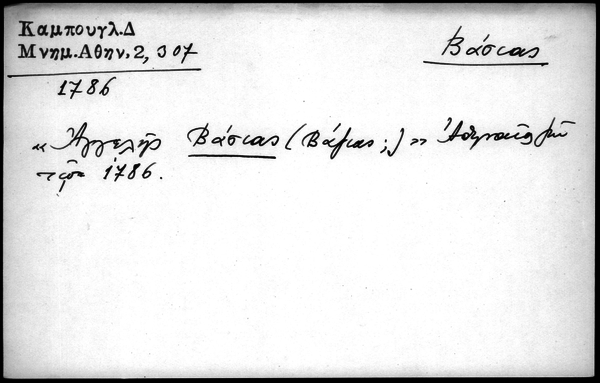 Καμπουγλ.Δ
Μνημ.Αθην. 2, 307
Βάσιας
1786
« Ἀγγελῆς Βάσιας (Βάγιας ;) » Ἀθηναῖος
1786.